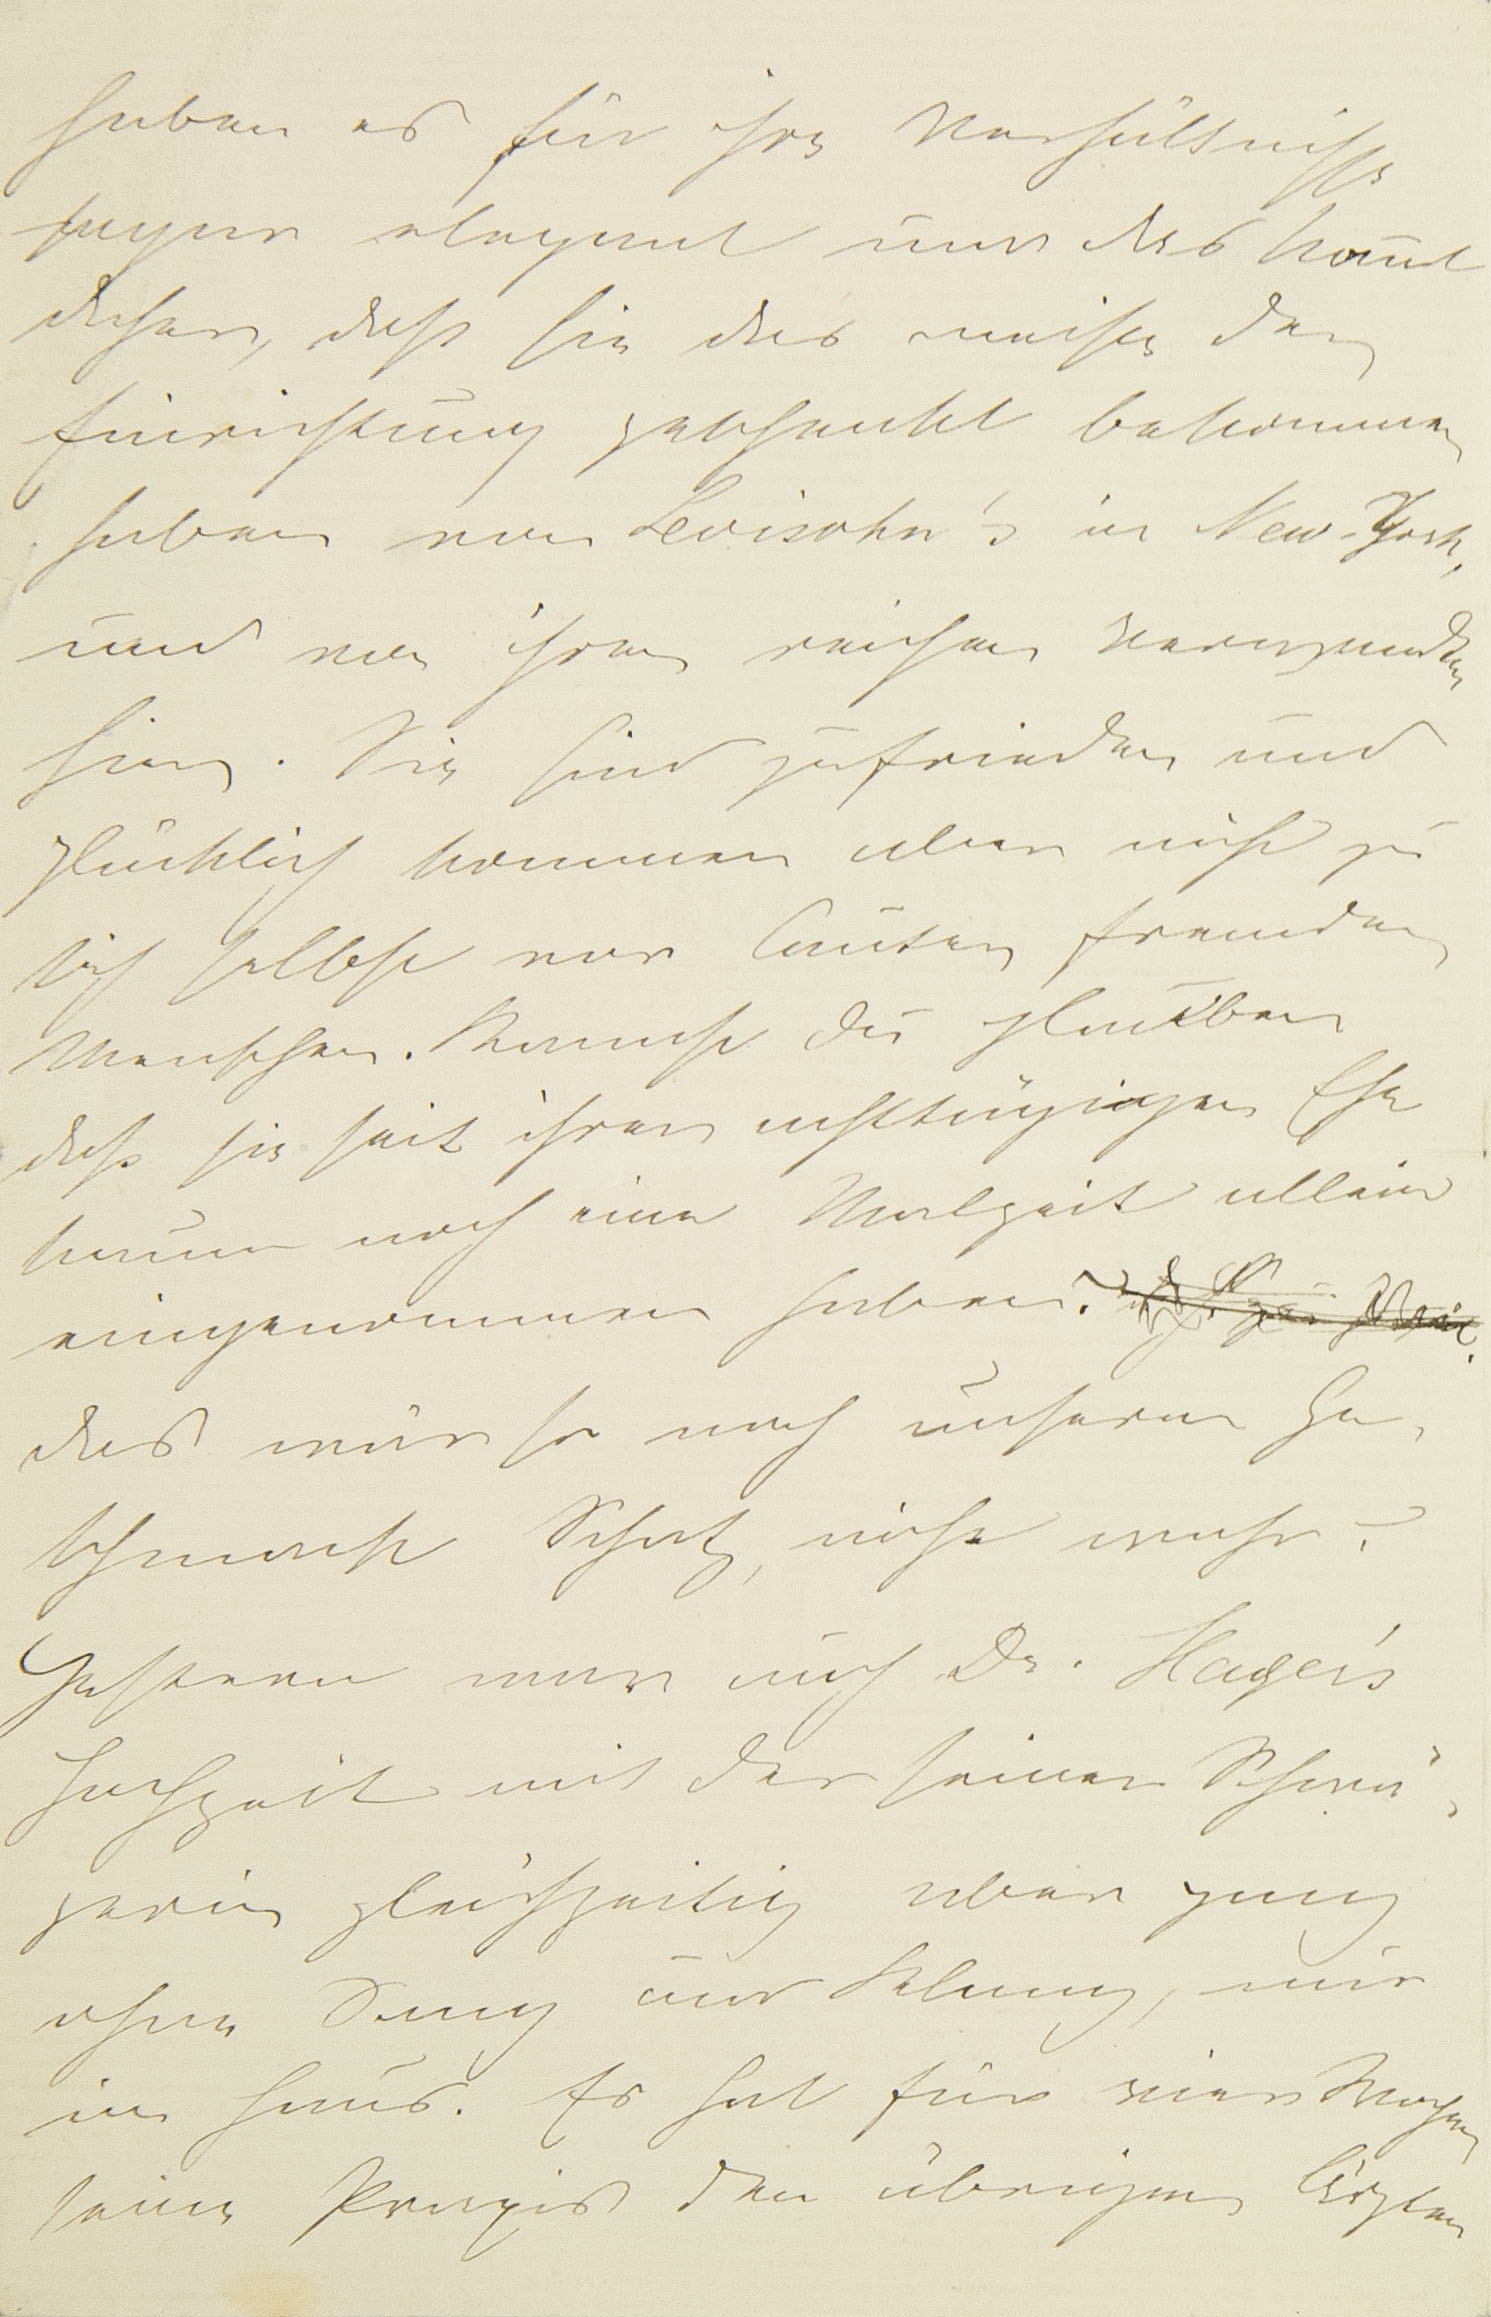 haben es für ihre Verhältnisse
sogar elegant und das kommt
daher, daß sie das meiste der
Einrichtung geschenkt bekommen
haben von Levisohn's in New-York,
und von ihren reichen Verwandten
hier. Sie sind zufrieden und
glücklich kommen aber nicht zu
sich selbst vor lauter fremden
Menschen. Kannst du glauben
daß sie seit ihrer achttägigen Ehe
kaum noch eine Malzeit allein
eingenommen haben?
das wär so nach unserem Ge-
schmack Schatz, nicht wahr?
Gestern war auch Dr. Hager's
Hochzeit mit der seiner Schwä-
gerin gleichzeitig aber ganz
ohne Sang und Klang, nur
im Haus. Er hat für vier Wochen
seine Praxis den übrigen Ärzten